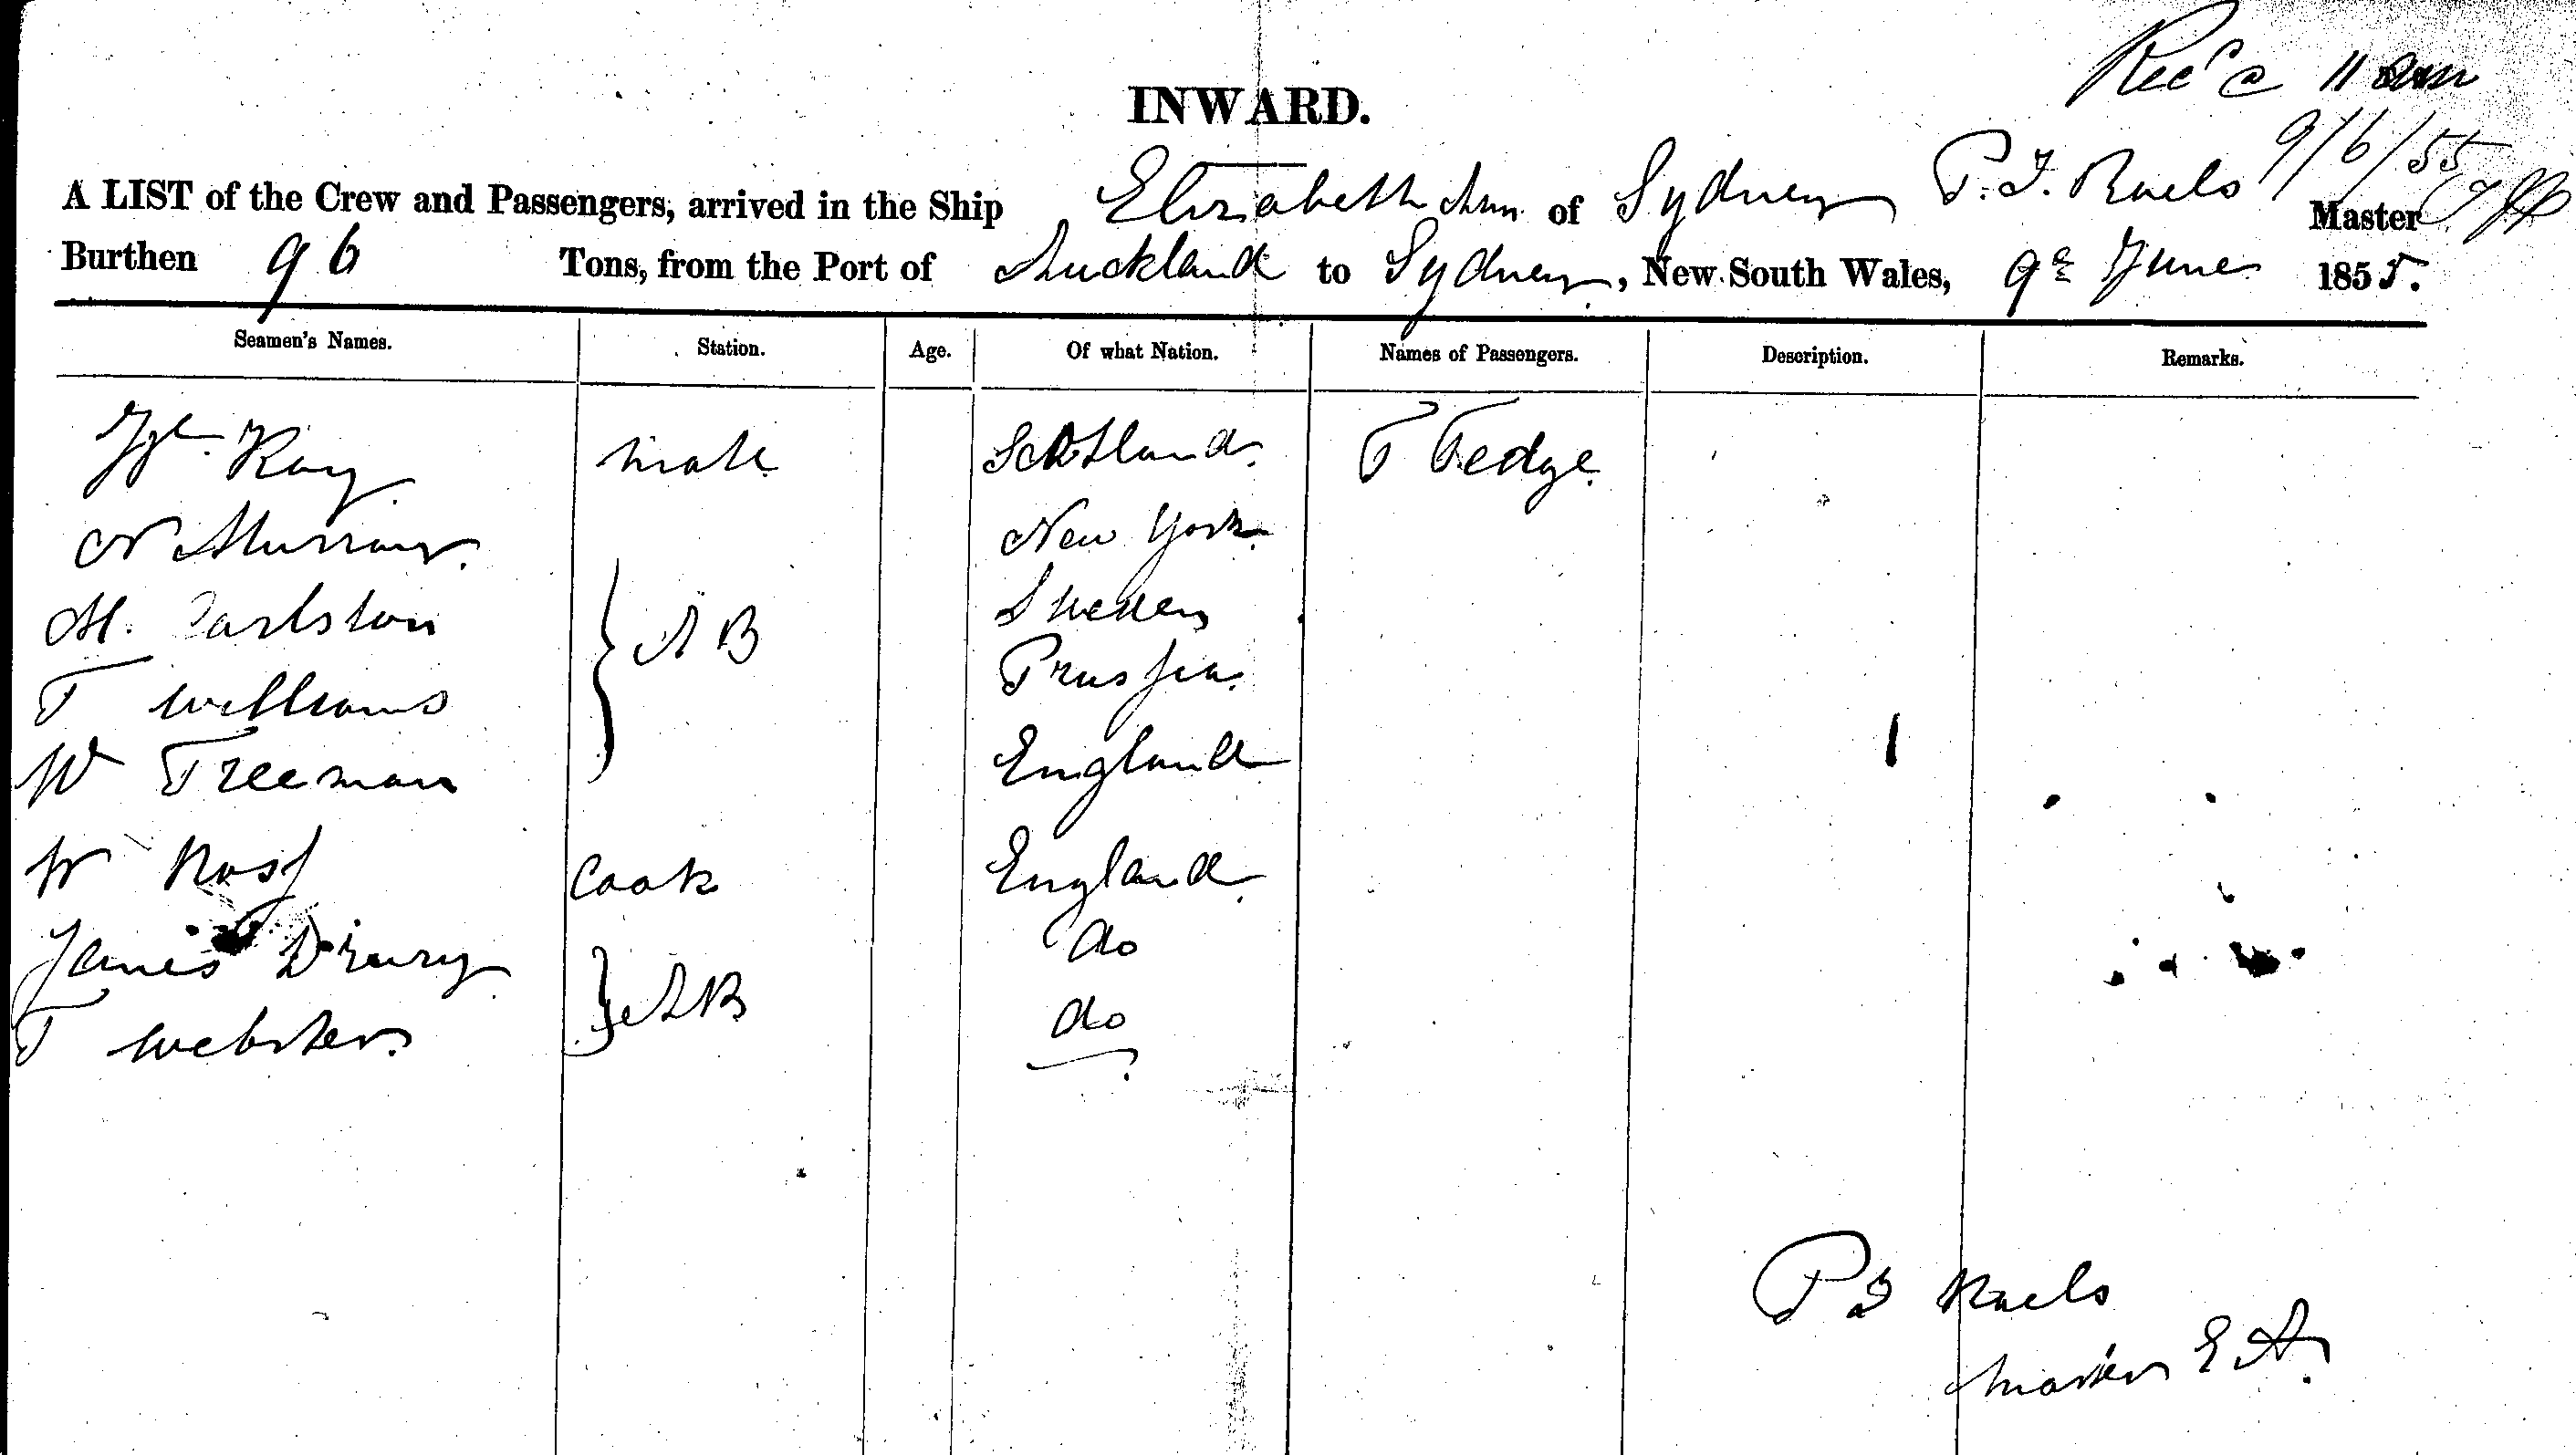 Recd @ 11 am
INWARD.
9/6/55
A LIST of the Crew and Passengers, arrived in the Ship Elizabeth Ann of Sydney P. I. Roels Master
Burthen 96 Tons, from the Port of Auckland to Sydney, New South Wales, 9th June 1855.
Seamen's Names. Station. Age. Of what Nation. Names of Passengers. Description. Remarks.
Kay mate Scotland. T Tedge.
N Murray. New York.
M. Carlston Sweden
A B
T Williams Prussia.
W Freeman England
W Ross Cook England.
James Drury do
A B
T Webster. do
P I Roels
Master E A.